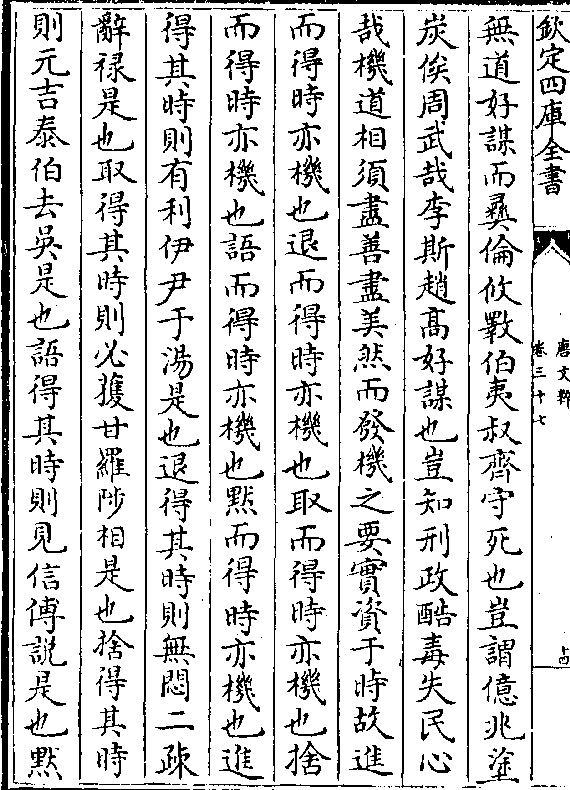 欽定四庫全書
唐文粹
卷三十七
無道好謀而彛倫攸斁伯夷叔齊守死也豈謂億兆塗
炭俟周武哉李斯趙髙好謀也豈知刑政酷毒失民心
哉機道相須盡善盡美然而發機之要實資于時故進
而得時亦機也退而得時亦機也取而得時亦機也捨
而得時亦機也語而得時亦機也黙而得時亦機也進
得其時則有利伊尹于湯是也退得其時則無悶二疎
辭禄是也取得其時則必獲甘羅陟相是也捨得其時
則元吉泰伯去吳是也語得其時則見信傅説是也黙